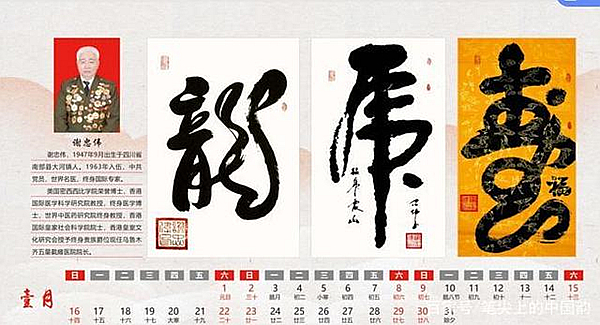 谢忠伟
谢忠伟，1947年9月出生于四川省
南部县大河镇人。1963年入伍，中共
党员，世界名医，终身国际专家。
美国密西西比学院荣誉博士，香港
国际医学科学研究院教授，终身医学博
士，世界中医药研究院终身教授，香港
国际皇家社会科学院院士，香港皇室文
化研究会授予终身贵族爵位现任乌鲁木
齐五星截瘫医院院长。
龍
虎
壽
福
壹月
日 一 二 三 四 五 六 日 一 二 三 四 五 六 日 一 二 三 四 五 六
1 2 3 4 5 6 7 8 9 10 11 12 13 14 15
元旦 三十 腊月 初二 小寒 初四 初五 初六 初七 腊八节 初九 初十 十一 十二 十三
16 17 18 19 20 21 22 23 24 25 26 27 28 29 30 31
十四 十五 十六 十七 大寒 十九 二十 除夕
百家号/笔尖上的中国韵